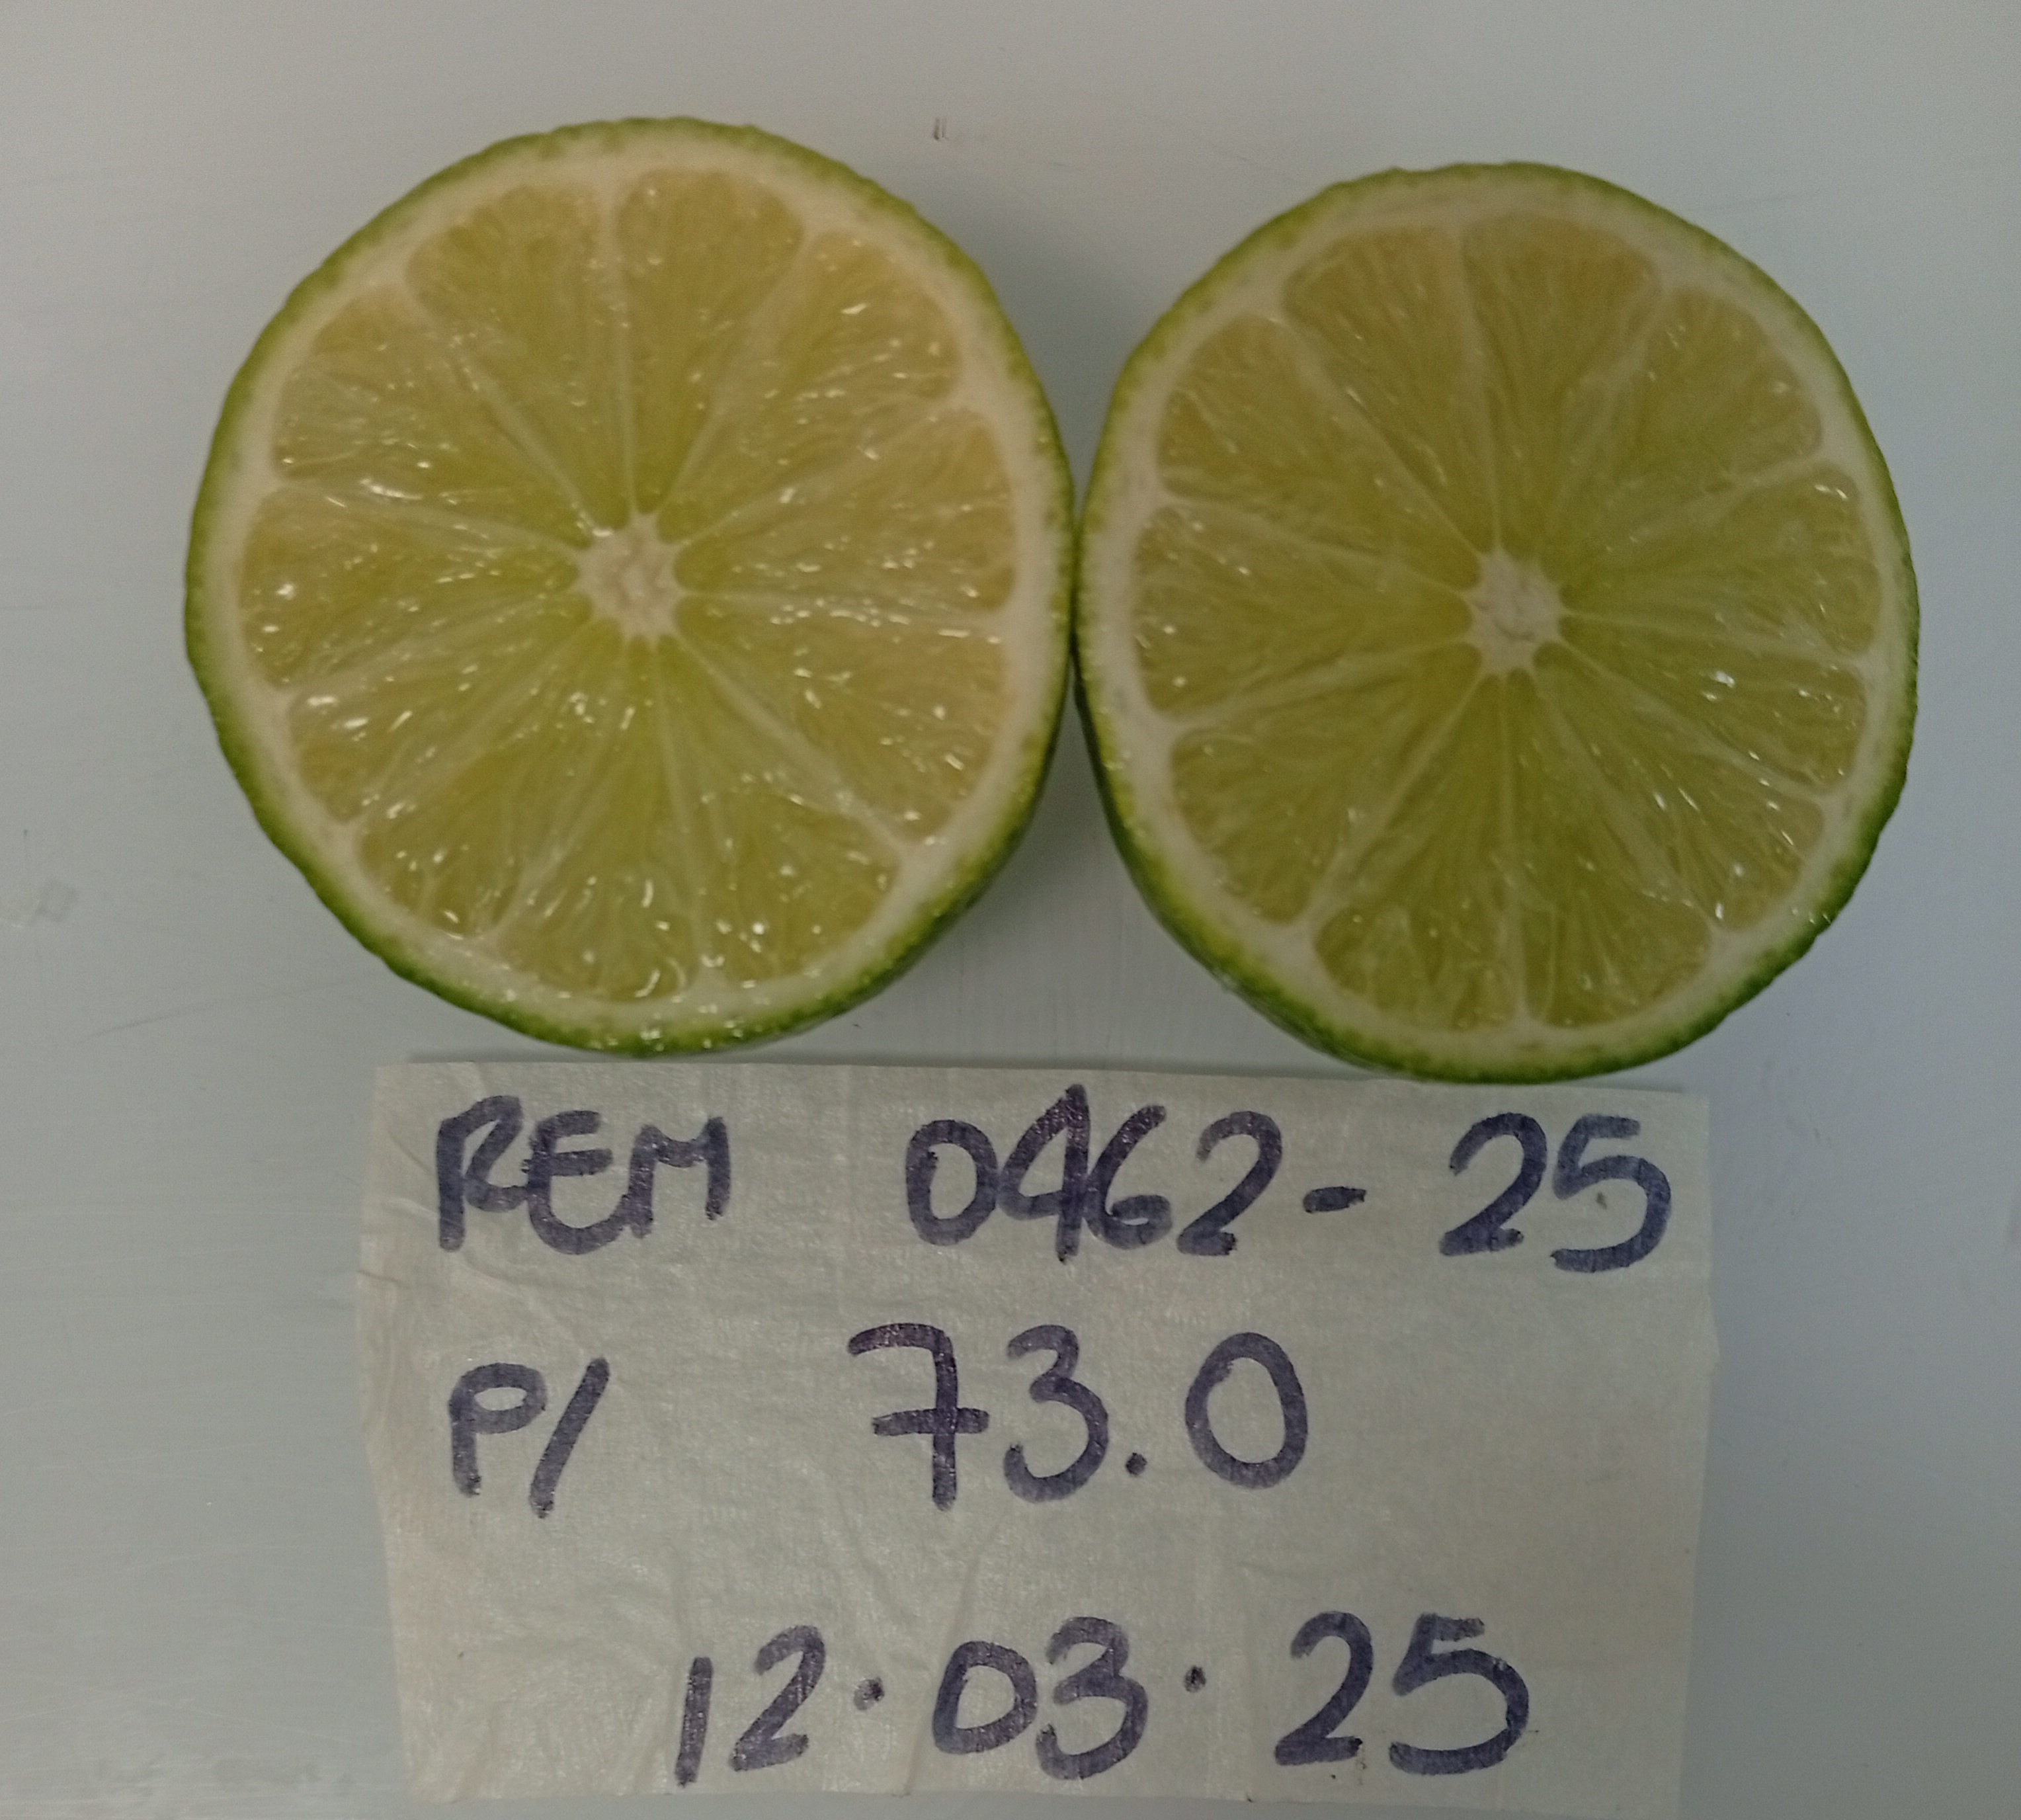 REM 0462-25
P/ 73.0
12.03.25